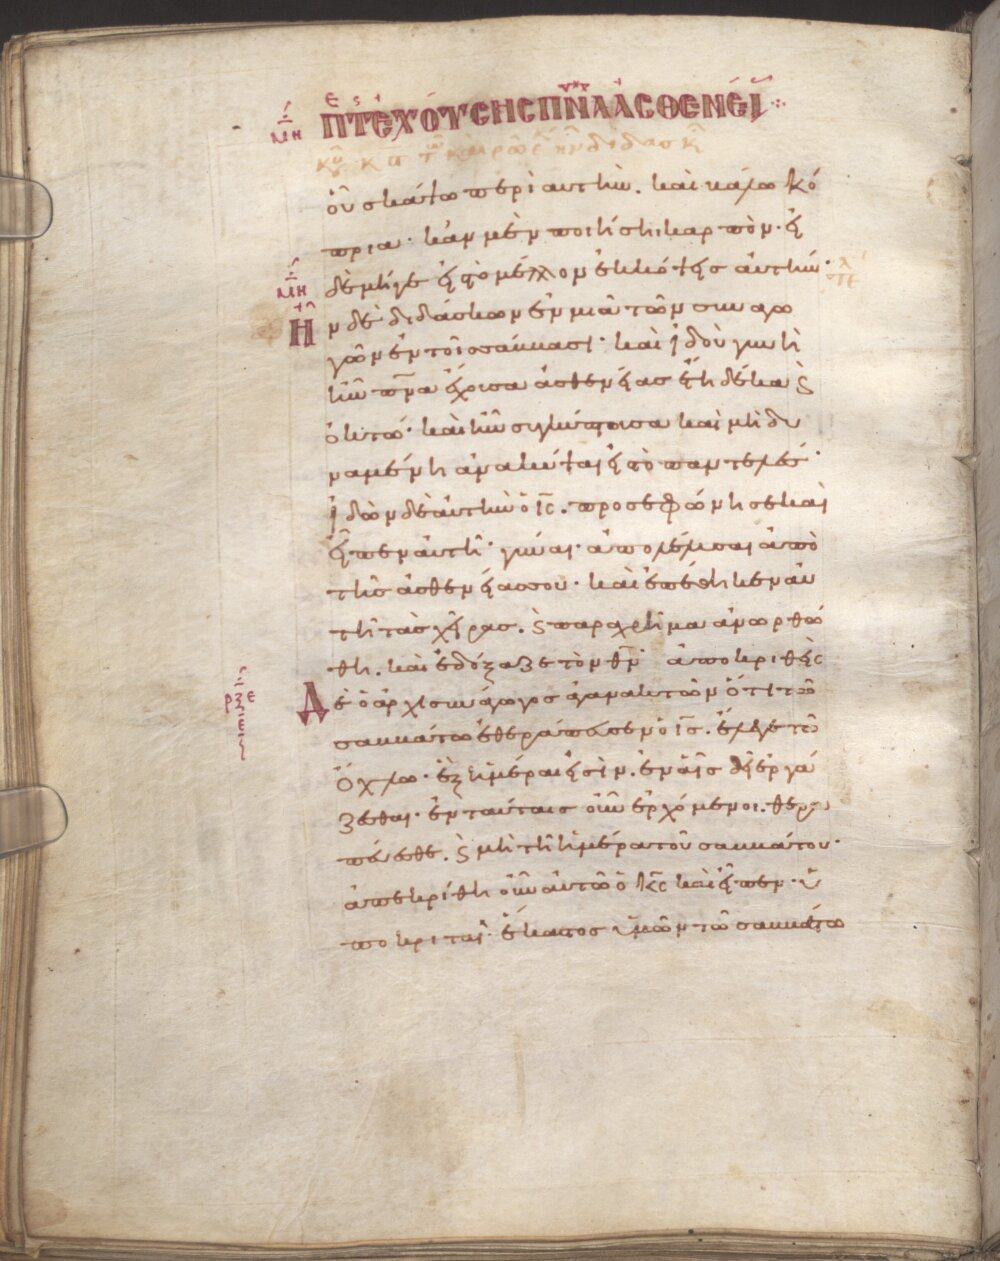 ΜΗ ΠΕΡΙ ΤΗΣ ΕΧΟΎΣΗΣ ΠΝΑ ΑΣΘΕΝΕΊΑΣ
οῦ σκάψω περὶ αυτὴν. καὶ κάλω κό
πρια· κἂν μὲν ποιήσηι καρπὸν· εἰ
δὲ μήγε εἰς τὸ μέλλον ἐκκόψεις ἀυτήν·
ΜΗ
Ην δὲ διδάσκων ἐν μιᾶ τῶν συναγω
γῶν ἐν τοῖς σάββασι· καὶ ἰδοὺ γυνὴ
ἦν πνα ἔχουσα ἀσθενείας ἔτη δέκα ϗ
ὀκτώ· καὶ ἦν συγκύπτουσα καὶ μὴ δυ
ναμένη ἀνακύψαι εἰς τὸ παντελές·
ἰδὼν δὲ ἀυτὴν ὁ ις. προσεφώνησε καὶ
εἶπεν ἀυτῆ· γύναι· ἀπολέλυσαι ἀπὸ
τῆς ἀσθενείας σου· καὶ ἐπέθηκεν ἀυ
τῆ τὰς χεῖρας. ϗ παραχρῆμα ἀνωρθώ
θη. καὶ ἐδόξαζε τὸν θν· ἀποκριθεὶς
ρξε
Δὲ ὁ ἀρχισυνάγωγος ἀγανακτῶν ὅτι τῶ
σαββάτω ἐθεράπευσεν ὁ ις. ἔλεγε τῶ
ὄχλω· ἓξ ἡμέραι εἰσὶν. ἐν αἷς δεῖ ἐργά
ζεσθαι· ἐν ταύταις οὖν ἐρχόμενοι. θερα
πεύεσθε. ϗ μὴ τῆ ἡμέρα τοῦ σαββάτου·
ἀπεκρίθη οὖν ἀυτῶ ὁ κς καὶ εἶπεν· ὑ
ποκριταί· ἕκαστος ὑμῶν τῶ σαββάτω